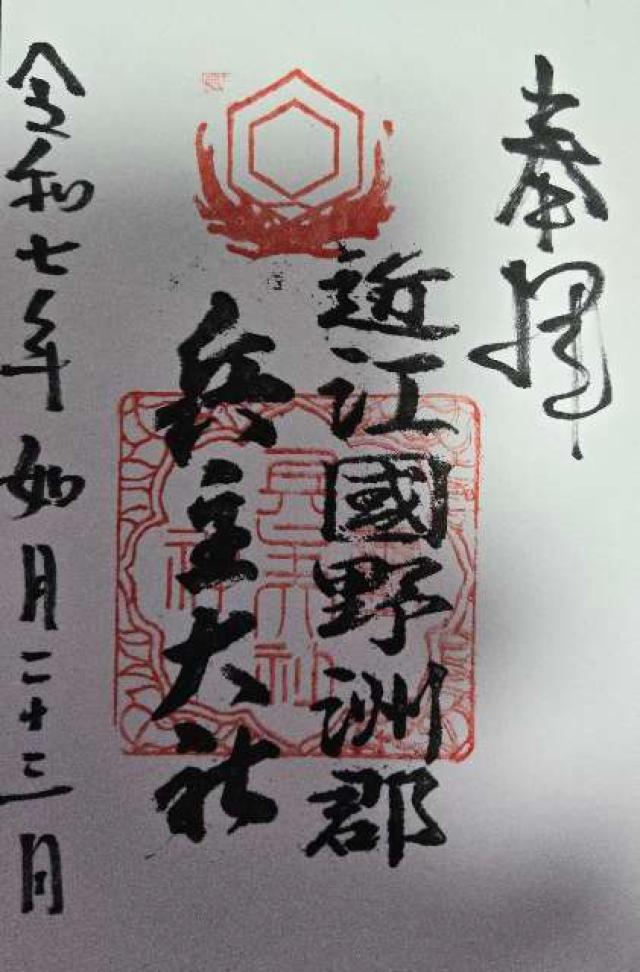 奉拝
近江國野洲郡
兵主大社
令和七年如月二十三日